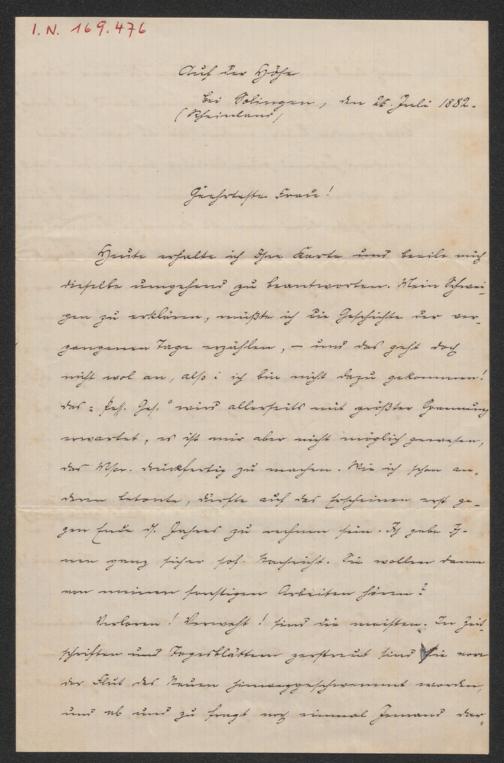 I. N. 169.476
Auf der Höhe
bei Solingen, den 26. Juli 1882.
(Rheinland)
Geehrteste Frau!
Heute erhalte ich Ihre Karte und beeile mich
dieselbe umgehend zu beantworten. Mein Schwei-
gen zu erklären, müßte ich die Geschichte der ver-
gangenen Tage erzählen, – und das geht doch
nicht wol an, also: ich bin nicht dazu gekommen!
Das „ Ges." wird allerseits mit größter Spannung
erwartet, es ist mir aber nicht möglich gewesen,
das Mscr. druckfertig zu machen. Wie ich schon an-
deren betonte, dürfte auf das Erscheinen erst ge-
gen Ende d. Jahres zu rechnen sein. Ich gebe Ih-
nen ganz sicher sof. Nachricht. Sie wollen dann
von meinen sonstigen Arbeiten hören?
Verloren! Verweht! sind die meisten. In Zeit-
schriften und Tagesblättern zerstreut sind sie von
der Flut des Neuen hinweggeschwemmt worden,
und ab und zu fragt noch einmal Jemand dar-